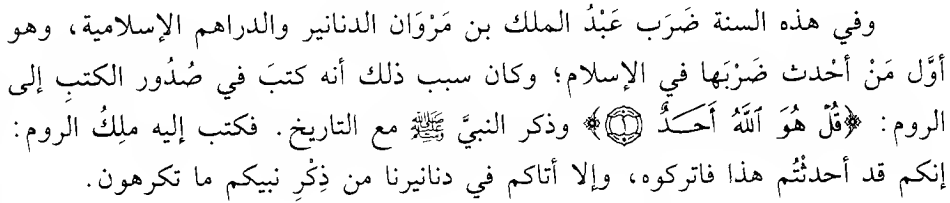 وفي هذه السنة ضَرَب عَبْدُ الملك بن مَرْوَان الدنانير والدراهم الإسلامية، وهو
أوَّل مَنْ أحْدث ضَرْبَها في الإسلام؛ وكان سبب ذلك أنه كتبَ في صُدُور الكتبِ إلى
الروم: ﴿قُلْ هُوَ ٱللَّهُ أَحَدٌ ۝١﴾ وذكر النبيَّ ﷺ مع التاريخ. فكتب إليه ملِكُ الروم:
إنكم قد أحدثْتُم هذا فاتركوه، وإلا أتاكم في دنانيرنا من ذِكْرِ نبيكم ما تكرهون.